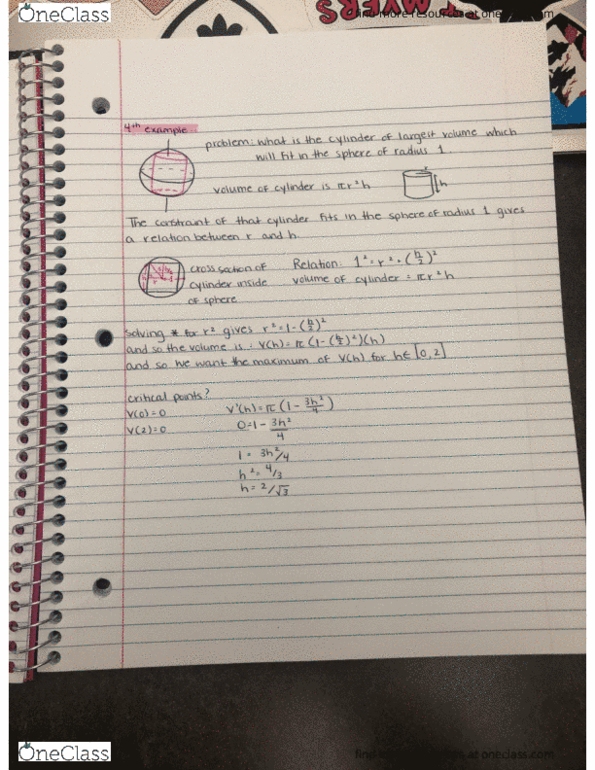 OneClass
find more resources at oneclass.com
MYERS
4th example
problem: what is the cylinder of largest volume which
will fit in the sphere of radius 1.
volume of cylinder is πr²h
h
The constraint of that cylinder fits in the sphere of radius 1 gives
a relation between r and h.
cross section of
cylinder inside
of sphere
Relation: 1² = r² + (h/2)²
volume of cylinder = πr²h
solving * for r² gives r² = 1 - (h/2)²
and so the volume is : V(h) = π(1 - (h/2)²)(h)
and so we want the maximum of V(h) for h ∈ [0, 2]
critical points?
V(0) = 0
V(2) = 0
V'(h) = π(1 - 3h²/4)
0 = 1 - 3h²/4
1 = 3h²/4
h² = 4/3
h = 2/√3
OneClass
find more resources at oneclass.com